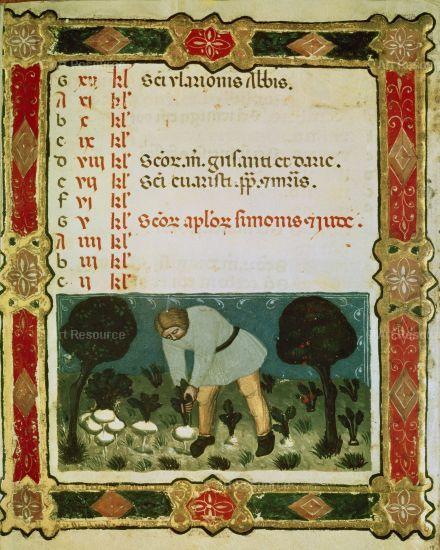 G xii kl' Sci ylarionis Abbis.
A xi kl'
b x kl'
c ix kl'
d viii kl' Scor. m. grisanti et darie.
e vii kl' Sci euaristi. pp. ⁊ mris.
f vi kl'
G v kl' Scor aplor simonis ⁊ iude.
A iiii kl'
b iii kl'
c ii kl'
Art Resource